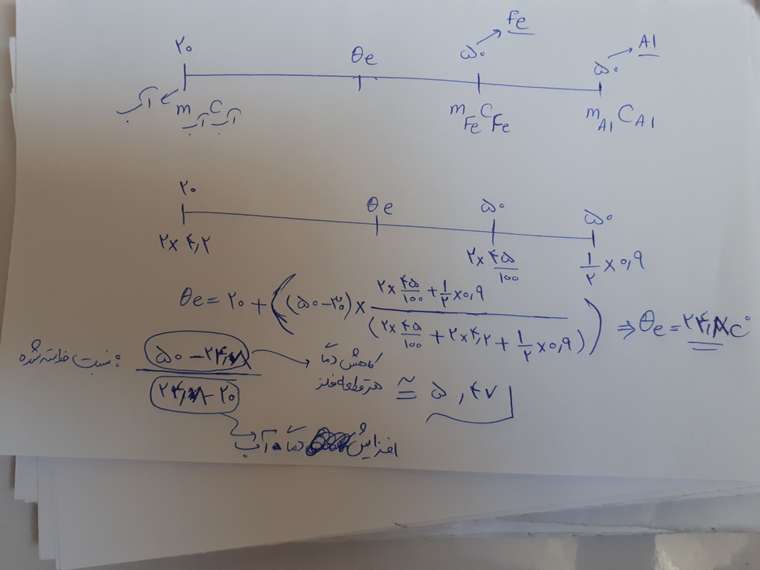 Fe
Al
۲۰ θe ۵۰ ۵۰
آب m آب C آب m Fe C Fe m Al C Al
۲۰ θe ۵۰ ۵۰
۲×۴,۲ ۲×۴۵/۱۰۰ ۱/۲×۰,۹
θe = ۲۰ + ((۵۰-۲۰) × (۲×۴۵/۱۰۰ + ۱/۲×۰,۹)/(۲×۴۵/۱۰۰ + ۲×۴,۲ + ۱/۲×۰,۹)) ⇒ θe = ۲۴,۸ C°
نسبت خواسته شده : (۵۰ - ۲۴,۸)/(۲۴,۸ - ۲۰) ≅ ۵,۴۷
کاهش دما
هر قطعه فلز
افزایش دما آب